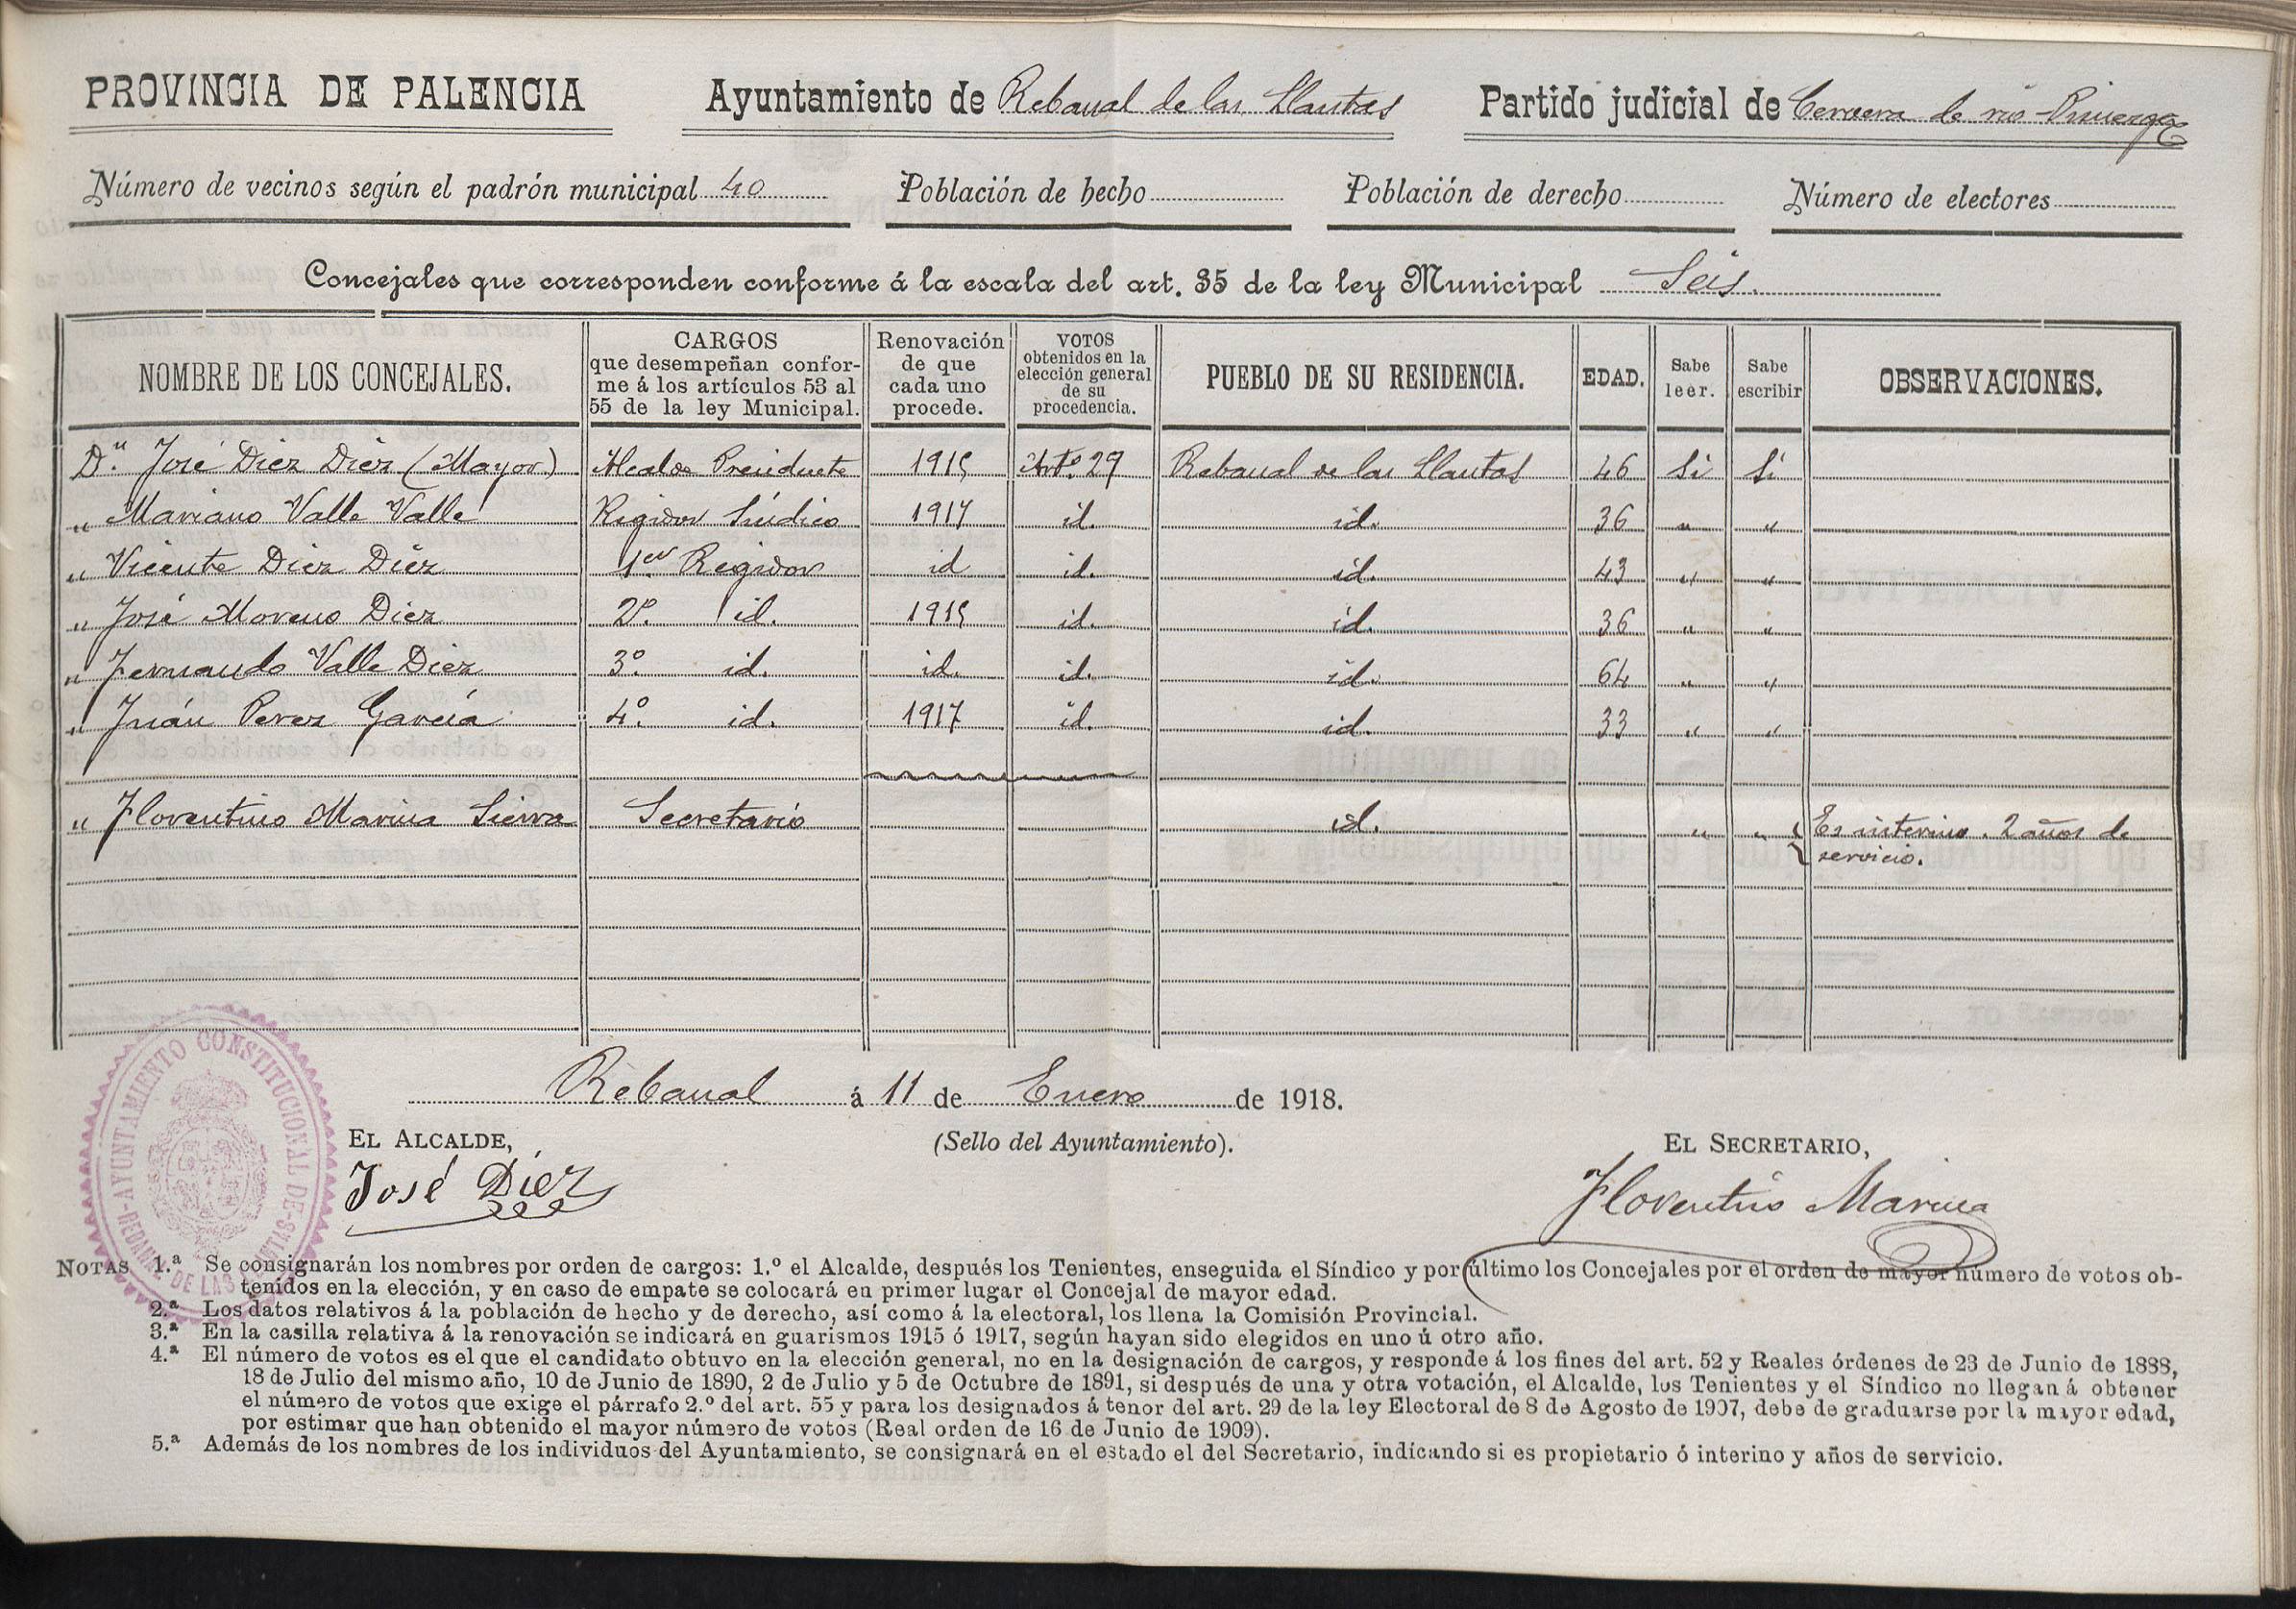 PROVINCIA DE PALENCIA Ayuntamiento de Rebanal de las Llantas Partido judicial de Cervera de rio Pisuerga
Número de vecinos según el padrón municipal 40 Población de hecho Población de derecho Número de electores
Concejales que corresponden conforme á la escala del art. 35 de la ley Municipal Seis.
NOMBRE DE LOS CONCEJALES. CARGOS que desempeñan conforme á los artículos 53 al 55 de la ley Municipal. Renovación de que cada uno procede. VOTOS obtenidos en la elección general de su procedencia. PUEBLO DE SU RESIDENCIA. EDAD. Sabe leer. Sabe escribir OBSERVACIONES.
D.n José Diez Diez (Mayor) Alcalde Presidente 1915 Artº. 29 Rebanal de las Llantas 46 Si Si
" Mariano Valle Valle Regidor Síndico 1917 id. id. 36 " "
" Vicente Diez Diez 1er Regidor id id. id. 43 " "
" José Moreno Diez 2º. id. 1915 id. id. 36 " "
" Fernando Valle Diez 3º id. id. id. id. 64 " "
" Juán Perez García 4º. id. 1917 id. id. 33 " "
" Florentino Marina Sierra Secretario id. " " Es interino. 2 años de
servicio.
Rebanal á 11 de Enero de 1918.
EL ALCALDE, (Sello del Ayuntamiento). EL SECRETARIO,
José Díez Florentino Marina
AYUNTAMIENTO CONSTITUCIONAL DE
NOTAS 1.ª Se consignarán los nombres por orden de cargos: 1.º el Alcalde, después los Tenientes, enseguida el Síndico y por último los Concejales por el orden de mayor número de votos ob-
tenidos en la elección, y en caso de empate se colocará en primer lugar el Concejal de mayor edad.
2.ª Los datos relativos á la población de hecho y de derecho, así como á la electoral, los llena la Comisión Provincial.
3.ª En la casilla relativa á la renovación se indicará en guarismos 1915 ó 1917, según hayan sido elegidos en uno ú otro año.
4.ª El número de votos es el que el candidato obtuvo en la elección general, no en la designación de cargos, y responde á los fines del art. 52 y Reales órdenes de 23 de Junio de 1888,
18 de Julio del mismo año, 10 de Junio de 1890, 2 de Julio y 5 de Octubre de 1891, si después de una y otra votación, el Alcalde, los Tenientes y el Síndico no llegan á obtener
el número de votos que exige el párrafo 2.º del art. 55 y para los designados á tenor del art. 29 de la ley Electoral de 8 de Agosto de 1907, debe de graduarse por la mayor edad,
por estimar que han obtenido el mayor número de votos (Real orden de 16 de Junio de 1909).
5.ª Además de los nombres de los individuos del Ayuntamiento, se consignará en el estado el del Secretario, indicando si es propietario ó interino y años de servicio.